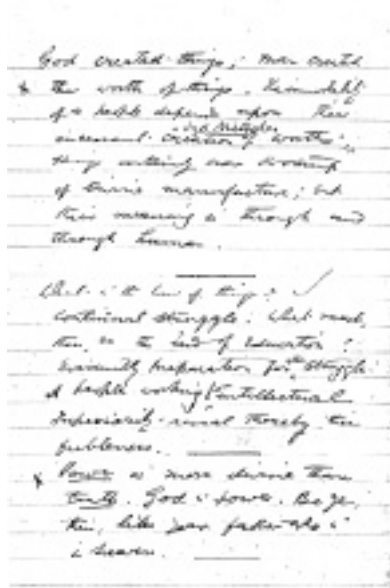 God created things; man created
the worth of things. Immortality
of a people depends upon their
incessant creation of "worths",
says Nietzsche
Things certainly bear
of Divine manufacture; but
their meaning is through and
through human.
What is the law of things?
Continual struggle. What must,
then be the end of Education?
Evidently preparation for the struggle.
A people working intellectual
superiority reveal thereby their
feebleness.
Power is more divine than
truth. God is power. Be ye,
then, like your father who is
in heaven.